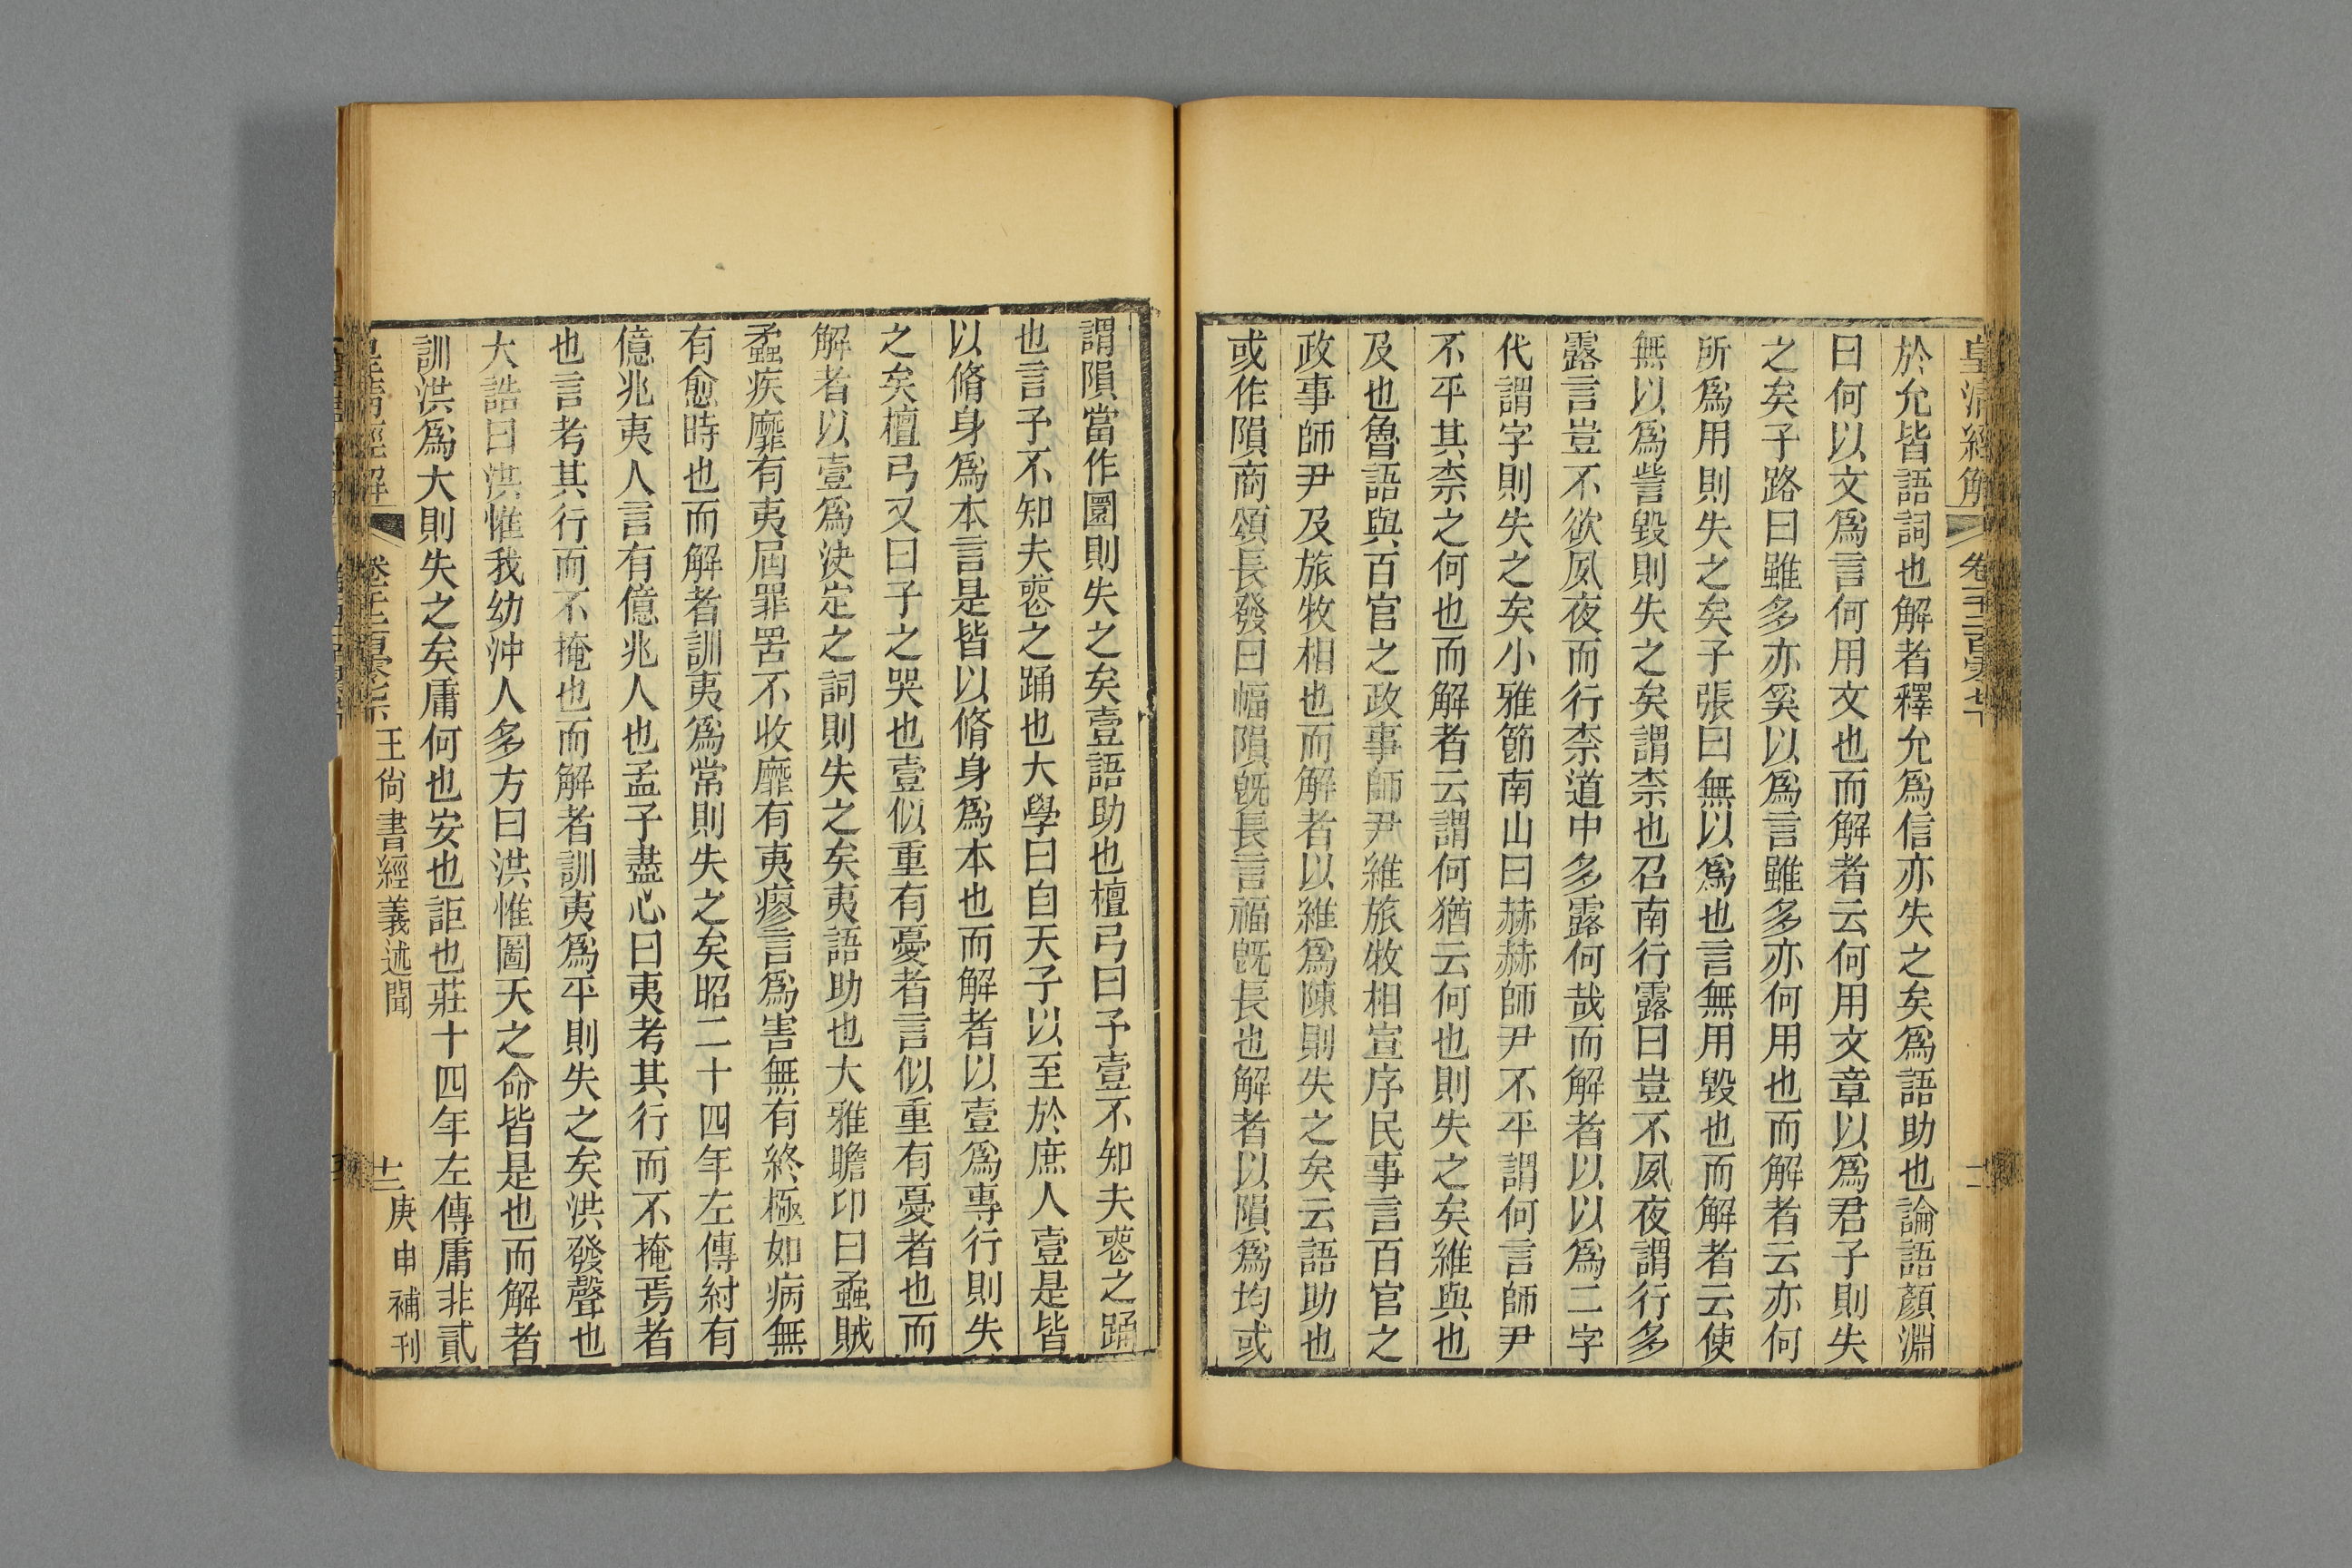 皇清經解 卷一千二百零七下 十二
於允皆語詞也解者釋允爲信亦失之矣爲語助也論語顏淵
曰何以文爲言何用文也而解者云何用文章以爲君子則失
之矣子路曰雖多亦奚以爲言雖多亦何用也而解者云亦何
所爲用則失之矣子張曰無以爲也言無用毀也而解者云使
無以爲訾毀則失之矣謂柰也召南行露曰豈不夙夜謂行多
露言豈不欲夙夜而行柰道中多露何哉而解者以以爲二字
代謂字則失之矣小雅節南山曰赫赫師尹不平謂何言師尹
不平其柰之何也而解者云謂何猶云何也則失之矣維與也
及也魯語與百官之政事師尹維旅牧相宣序民事言百官之
政事師尹及旅牧相也而解者以維爲陳則失之矣云語助也
或作隕商頌長發曰幅隕旣長言福旣長也解者以隕爲均或
謂隕當作圜則失之矣壹語助也檀弓曰予壹不知夫喪之踊
也言予不知夫喪之踊也大學曰自天子以至於庶人壹是皆
以脩身爲本言是皆以脩身爲本也而解者以壹爲專行則失
之矣檀弓又曰子之哭也壹似重有憂者言似重有憂者也而
解者以壹爲決定之詞則失之矣夷語助也大雅瞻卬曰蟊賊
蟊疾靡有夷屆罪罟不收靡有夷瘳言爲害無有終極如病無
有愈時也而解者訓夷爲常則失之矣昭二十四年左傳紂有
億兆夷人言有億兆人也孟子盡心曰夷考其行而不掩焉者
也言考其行而不掩也而解者訓夷爲平則失之矣洪發聲也
大誥曰洪惟我幼沖人多方曰洪惟圖天之命皆是也而解者
訓洪爲大則失之矣庸何也安也詎也莊十四年左傳庸非貳
皇清經解 卷一千二百零七下 王尙書經義述聞 十二 庚申補刊